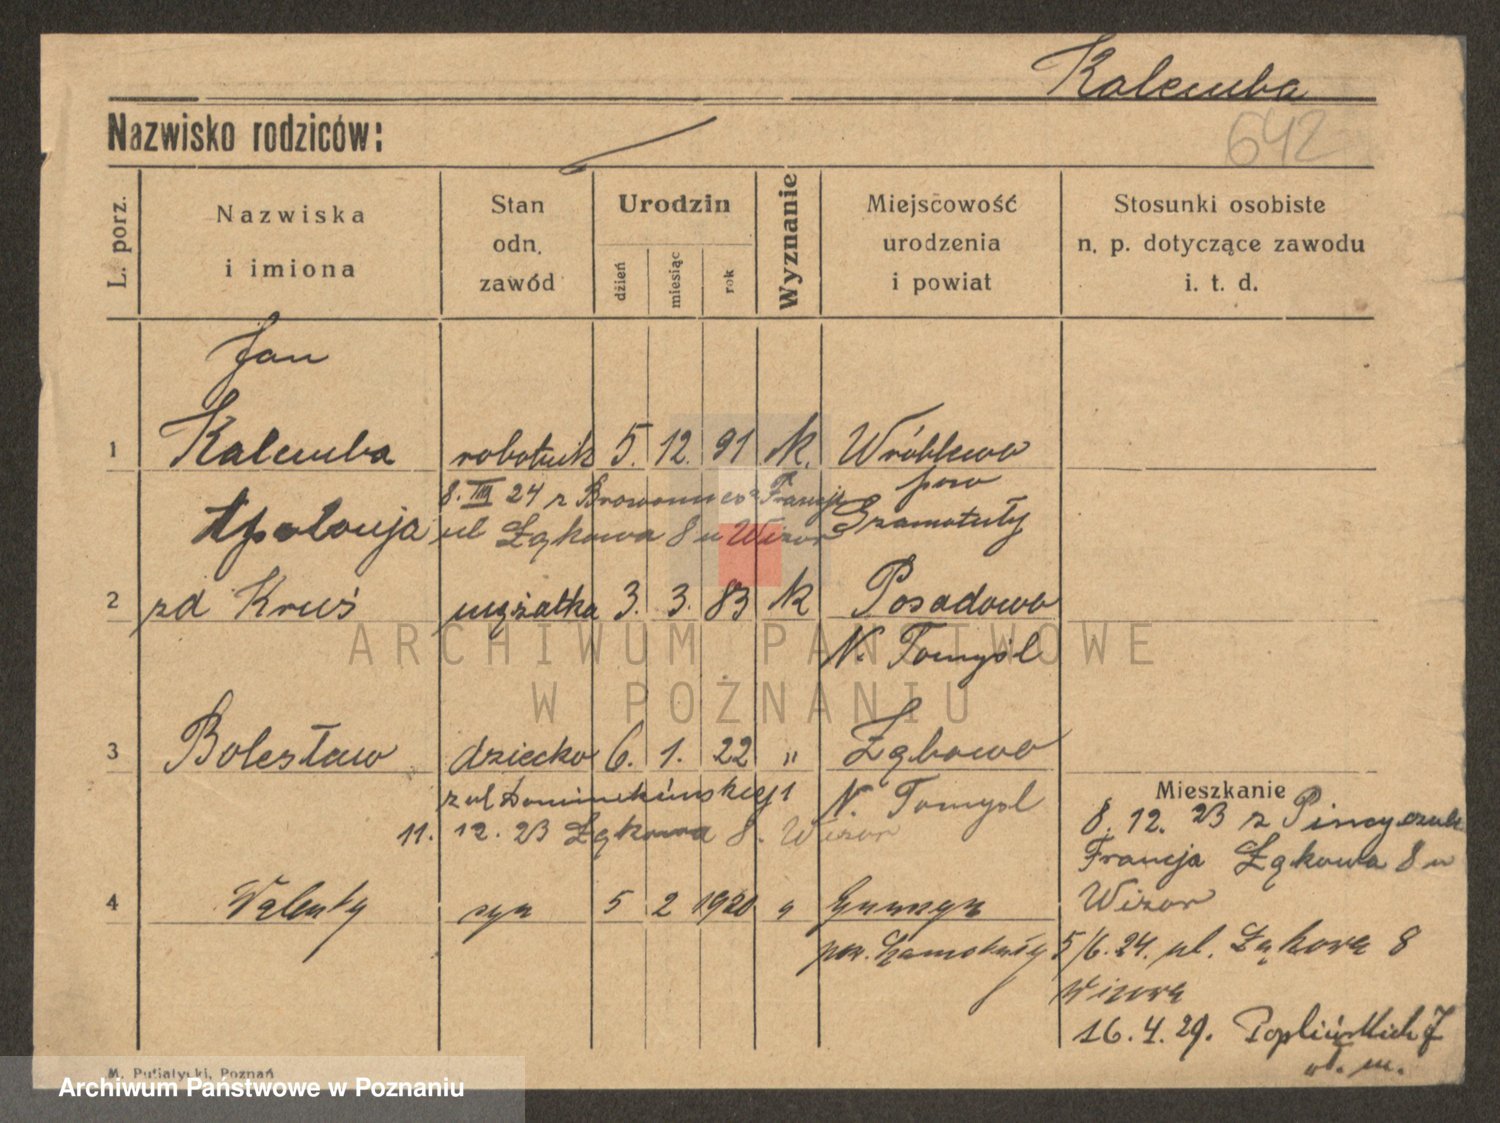 Kalemba
642
Nazwisko rodziców:
L. porz.
Nazwiska
i imiona
Stan
odn.
zawód
Urodzin
dzień
miesiąc
rok
Wyznanie
Miejscowość
urodzenia
i powiat
Stosunki osobiste
n. p. dotyczące zawodu
i. t. d.
Jan
1 Kalemba robotnik 5. 12. 91 k. Wróblewo
pow
8. III 24 z Francji Szamotuły
Apolonja ul Łąkowa 8 u Wizor
2 zd Kruś mężatka 3. 3. 83 k Posadowo
N. Tomyśl
ARCHIWUM PAŃSTWOWE
W POZNANIU
3 Bolesław dziecko 6. 1. 22 " Łąbowo
z ul Dominikańskiej 1 N. Tomysl
11. 12. 23 Łąkowa 8. Wizor
Mieszkanie
8. 12. 23 z
Francja Łąkowa 8 u
Wizor
4 Walenty syn 5 2 1920 "
pow. Szamotuły
5/6.24. ul. Łąkowa 8
Wizora
16.4.29. Poplińskich 7
M. Putiatycki, Poznań
Archiwum Państwowe w Poznaniu